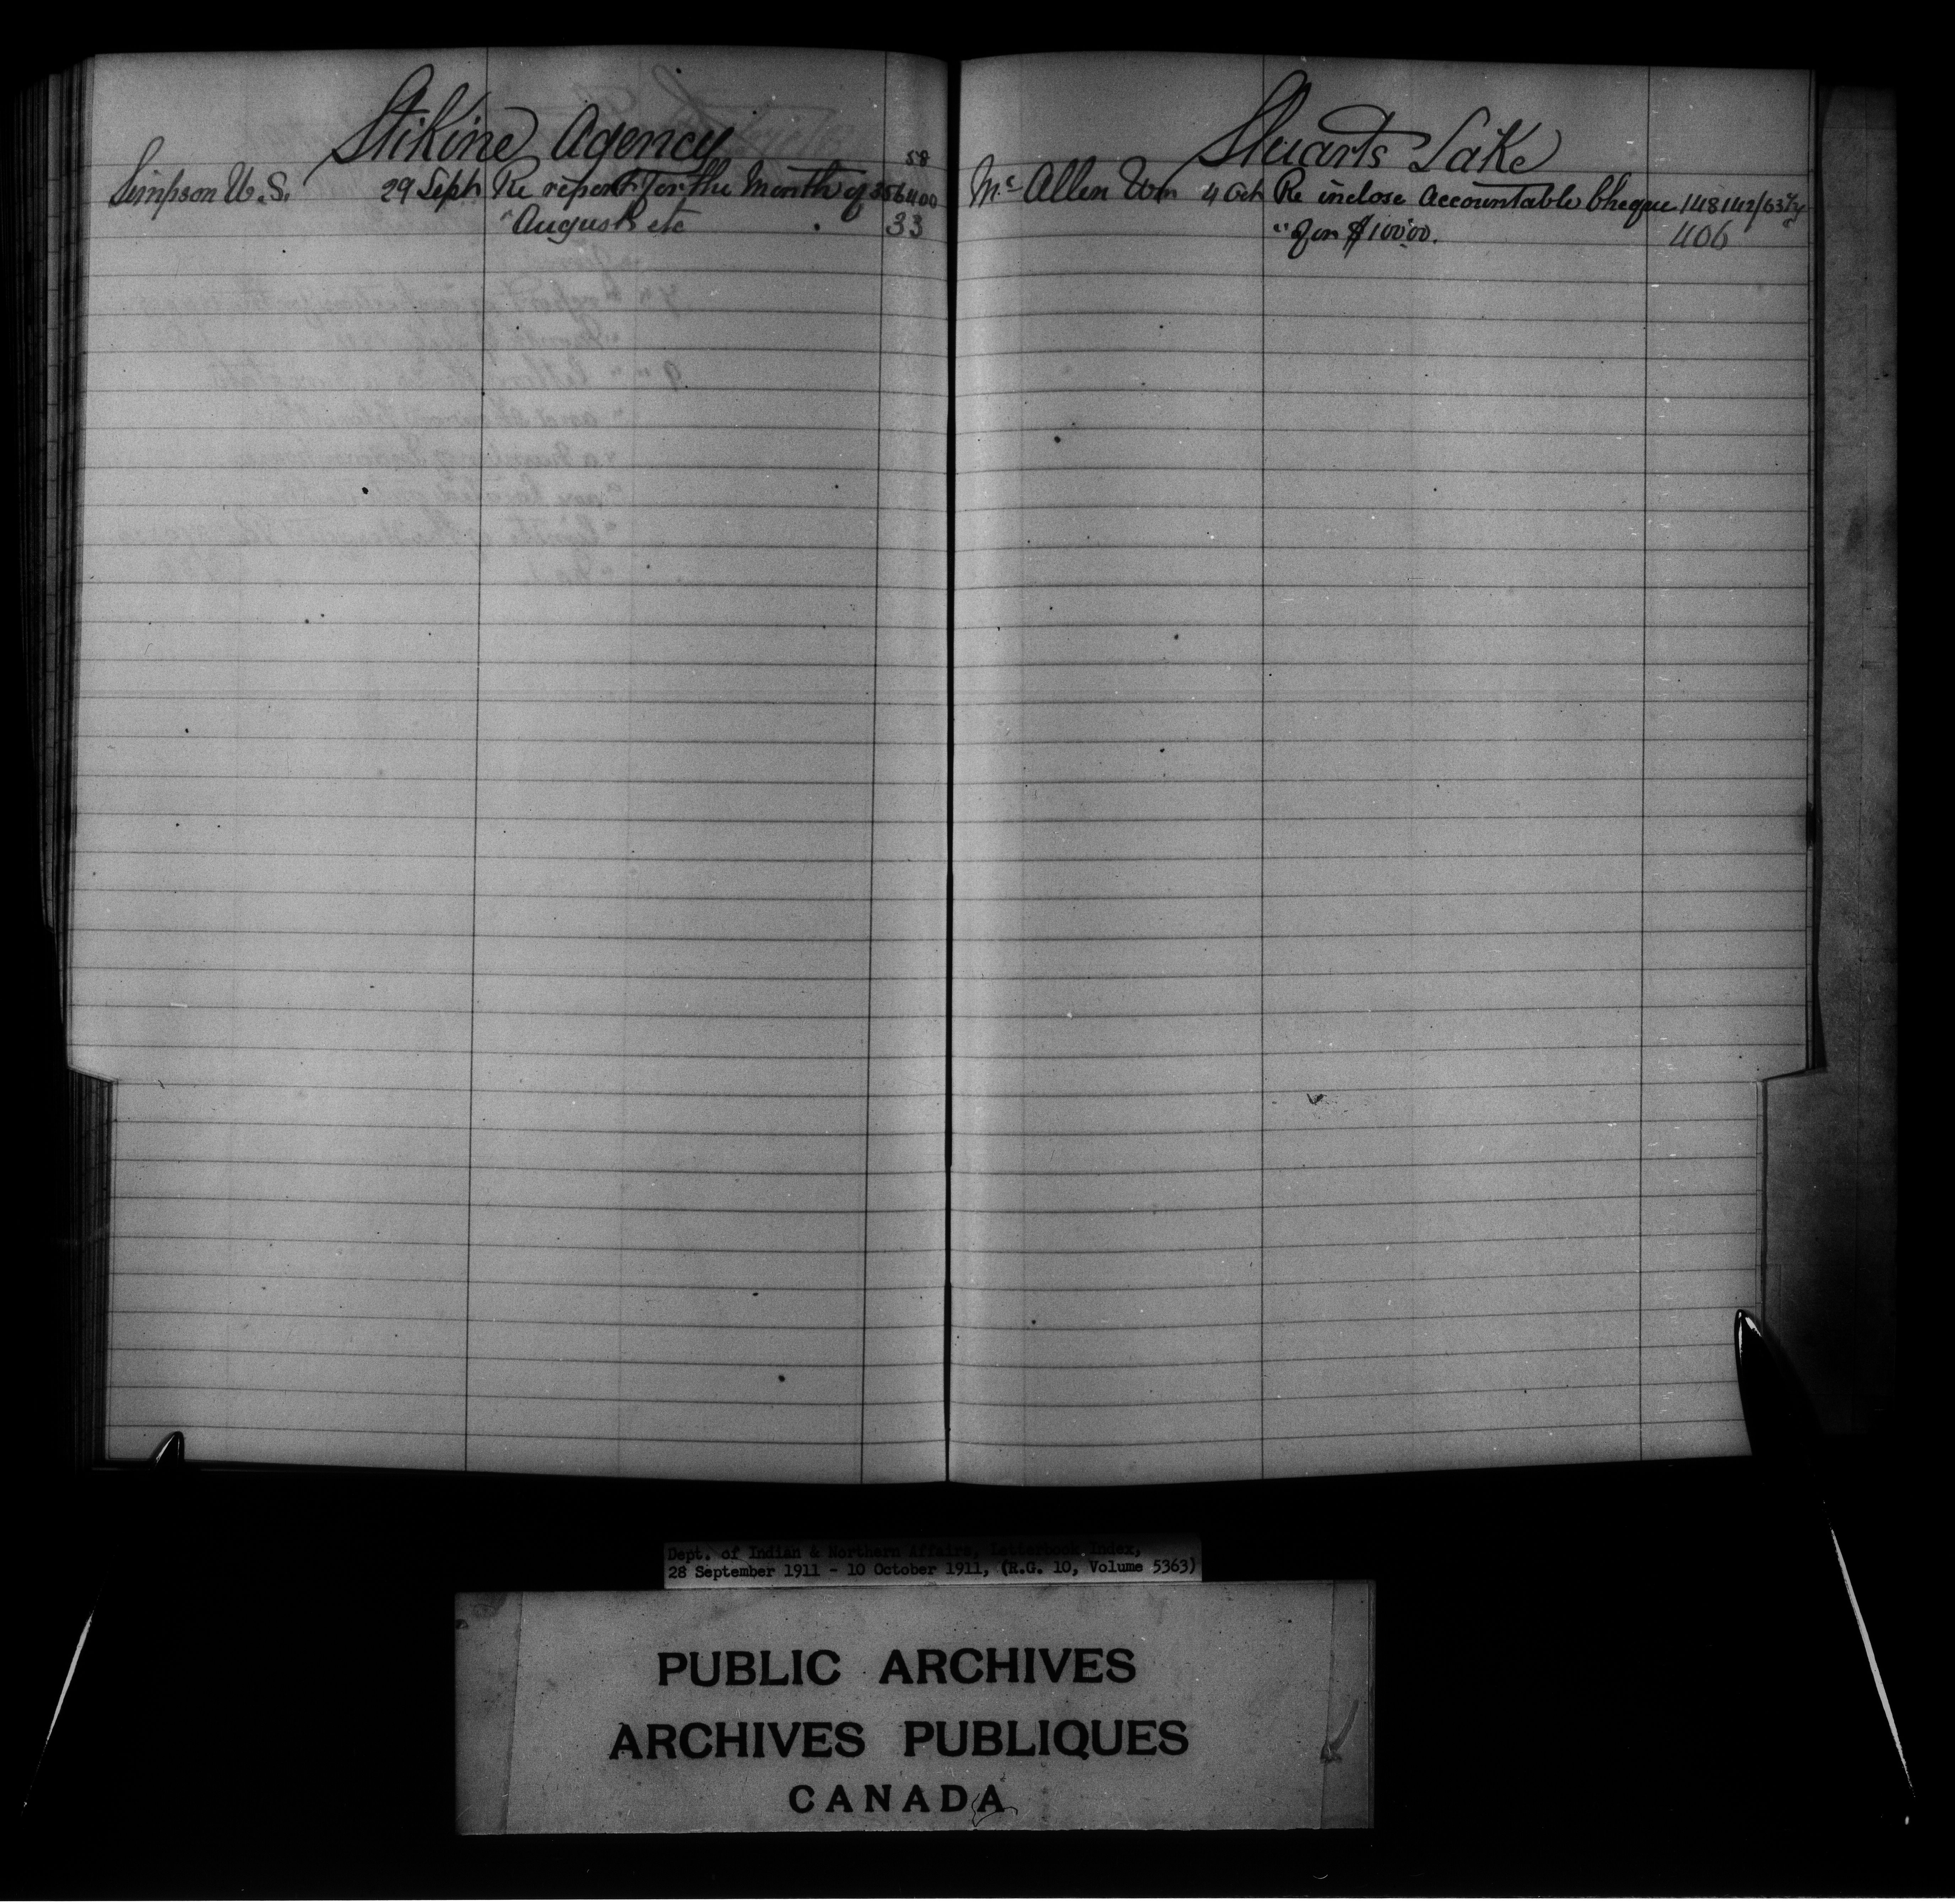 Stikine Agency
58
Simpson W.S. 29 Sept Re report for the Month of 356400
" August etc 33
Stuarts Lake
Mc Allen Wm 4 Oct Re inclose Accountable Cheque 148142/63
" for $100.00. 406
Dept. of Indian & Northern Affairs, Letterbook Index,
28 September 1911 - 10 October 1911, (R.G. 10, Volume 5363)
PUBLIC ARCHIVES
ARCHIVES PUBLIQUES
CANADA